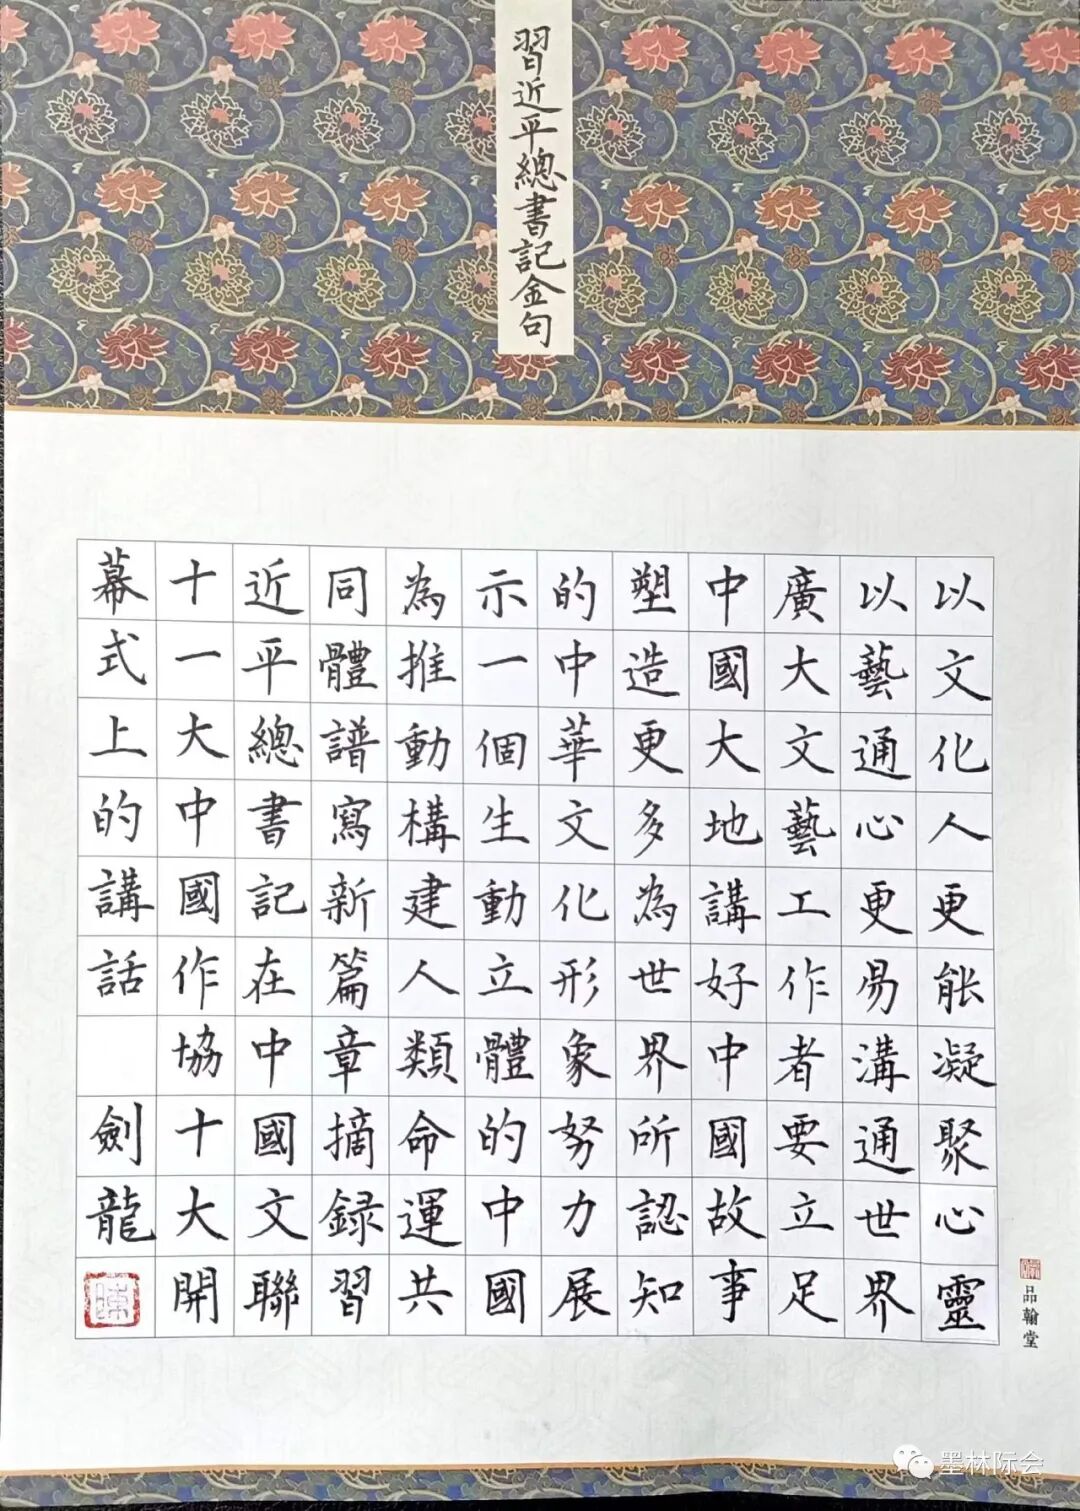 習近平總書記金句
以文化人更能凝聚心靈
以藝通心更易溝通世界
廣大文藝工作者要立足
中國大地講好中國故事
塑造更多為世界所認知
的中華文化形象努力展
示一個生動立體的中國
為推動構建人類命運共
同體譜寫新篇章摘録習
近平總書記在中國文聯
十一大中國作協十大開
幕式上的講話 劍龍
陳
品翰堂
墨林际会